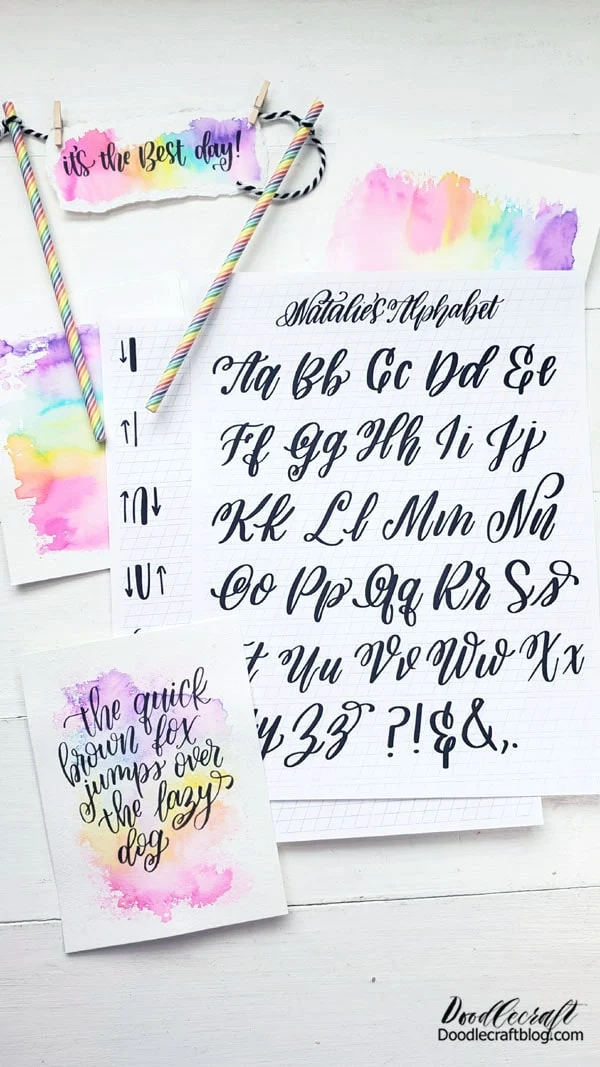 it's the Best day!
Natalie's Alphabet
Aa Bb Cc Dd Ee
Ff Gg Hh Ii Jj
Kk Ll Mm Nn
Oo Pp Qq Rr Ss
t Uu Vv Ww Xx
y Zz ?!&&,.
the quick
brown fox
jumps over
the lazy
dog
Doodlecraft
Doodlecraftblog.com